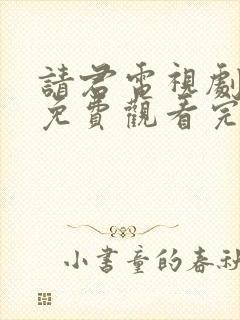 請君電視劇
免費觀看完
小書童的春秋